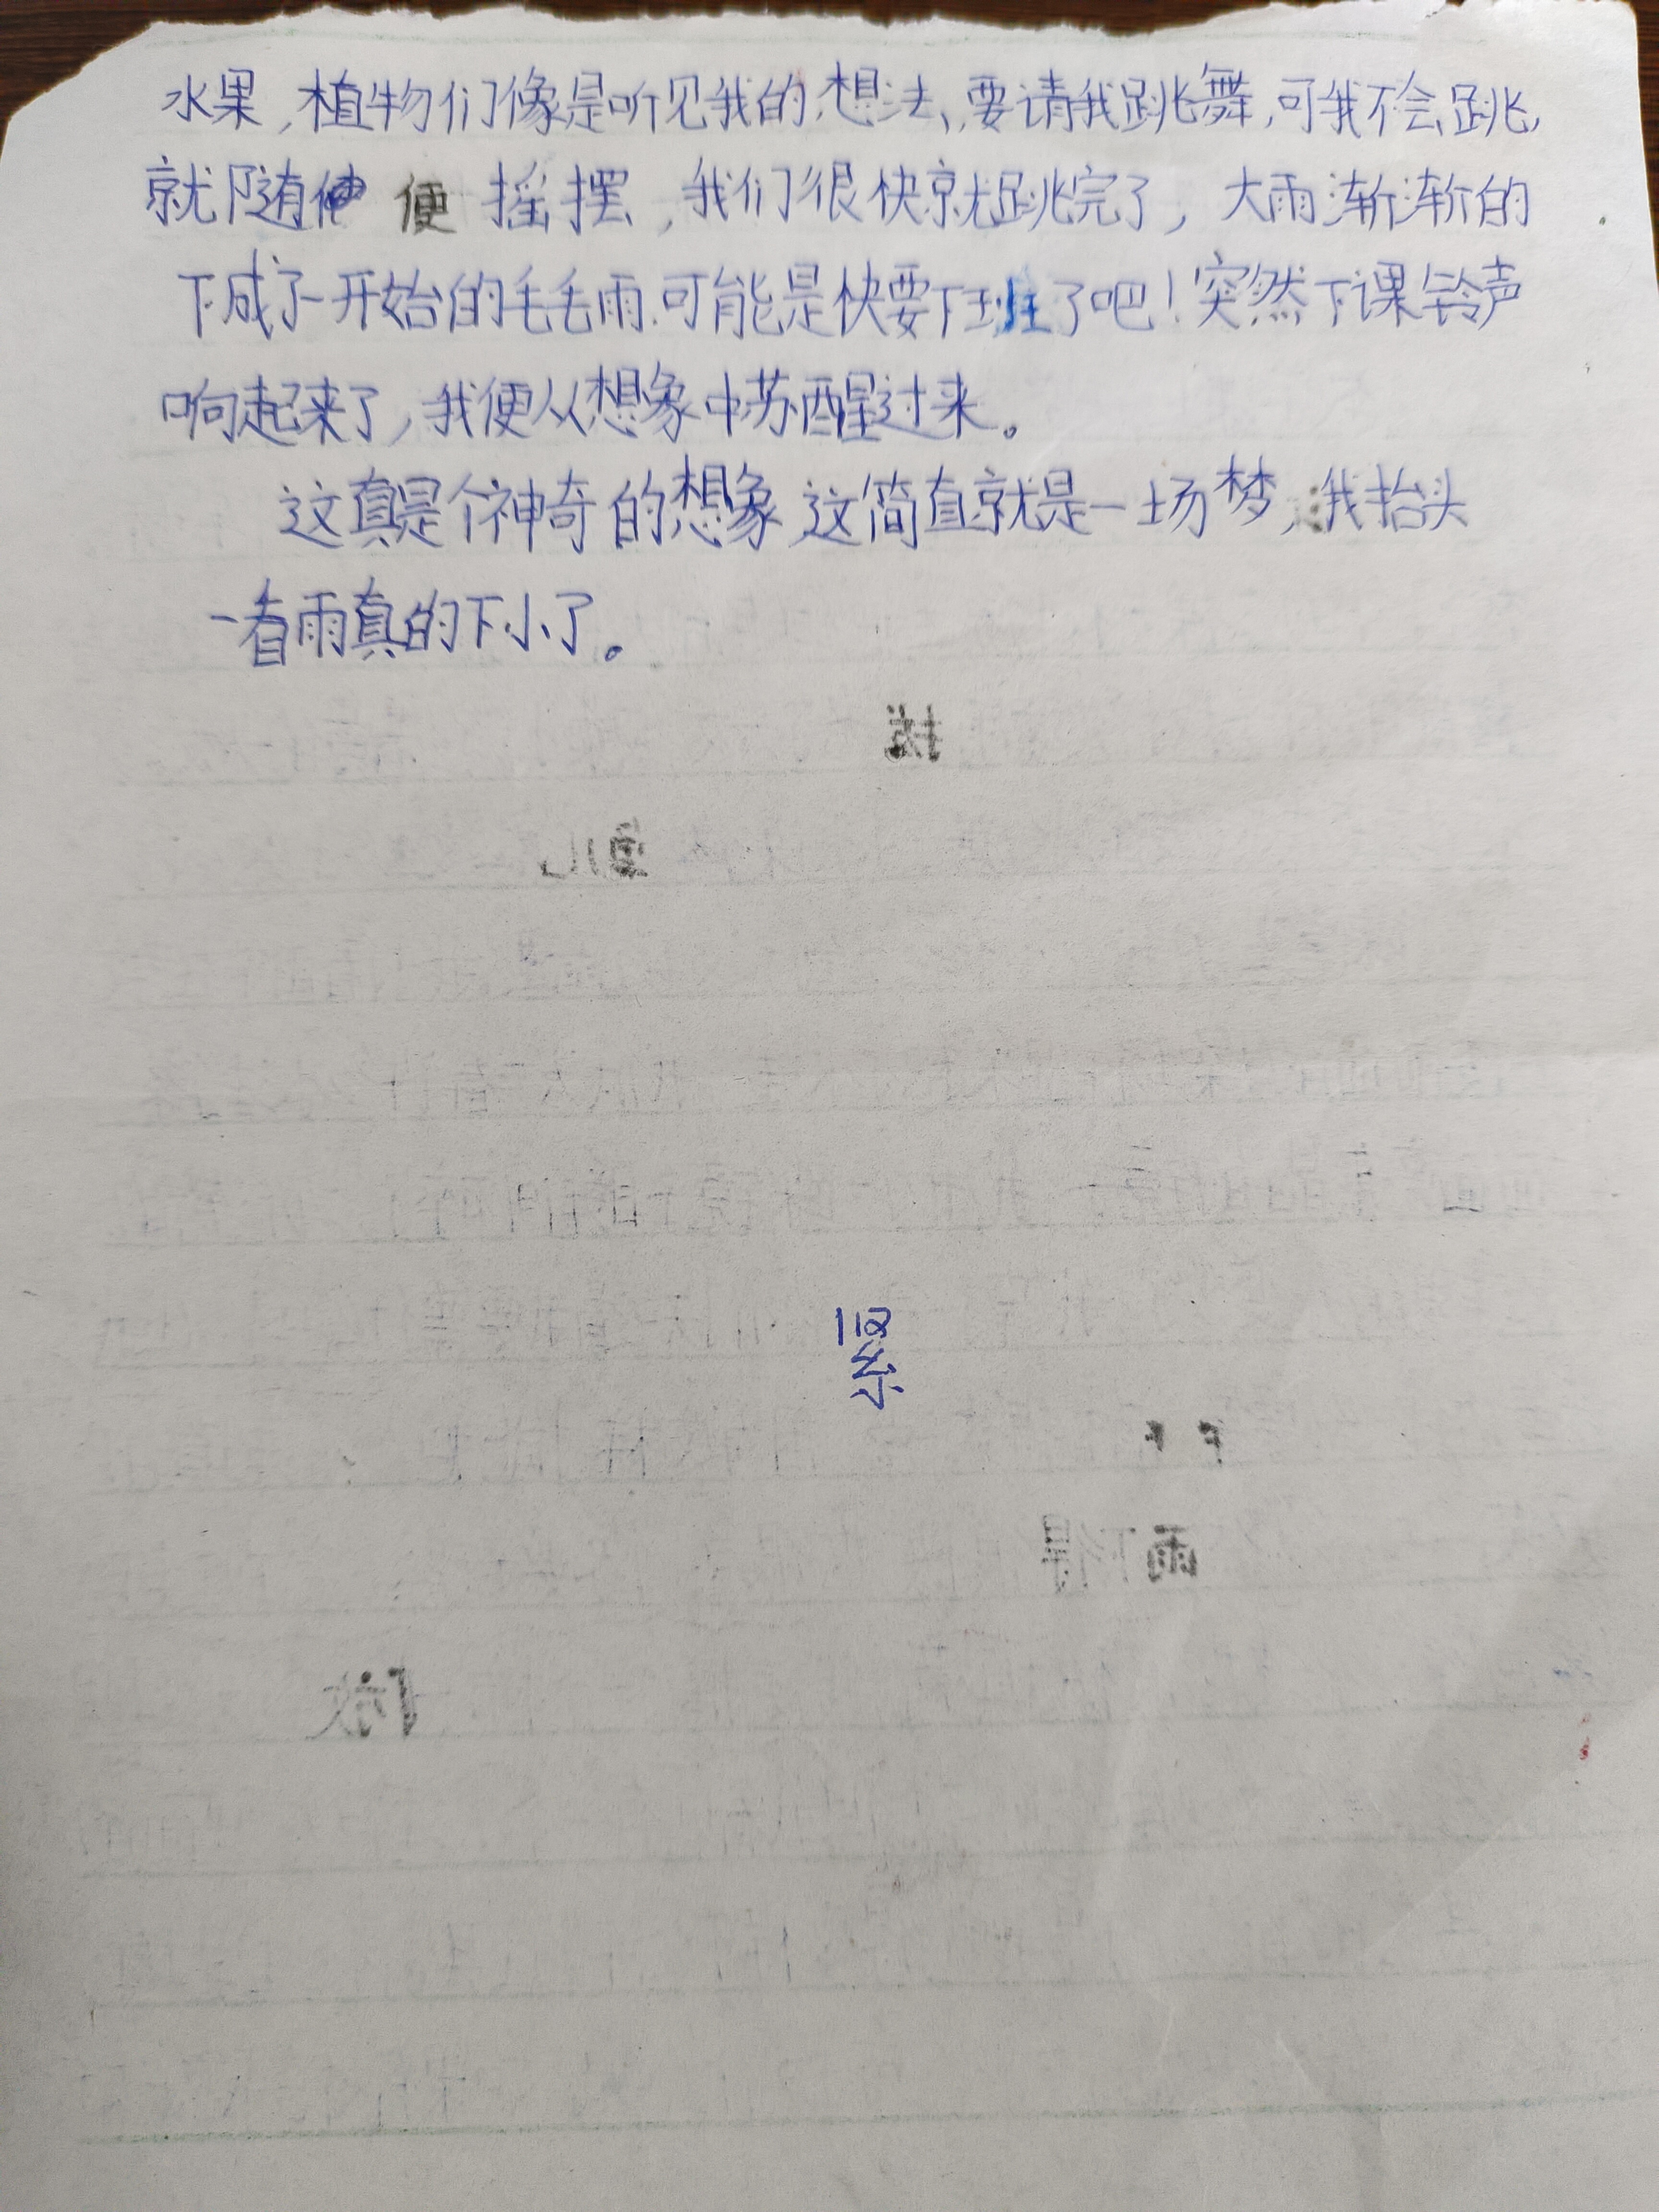 水果,植物们像是听见我的想法,要请我跳舞,可我不会跳,
就随便 摇摆,我们很快就跳完了,大雨渐渐的
下成了一开始的毛毛雨.可能是快要下班了吧!突然下课铃声
响起来了,我便从想象中苏醒过来。
这真是个神奇的想象,这简直就是一场梦,我抬头
一看雨真的下小了。